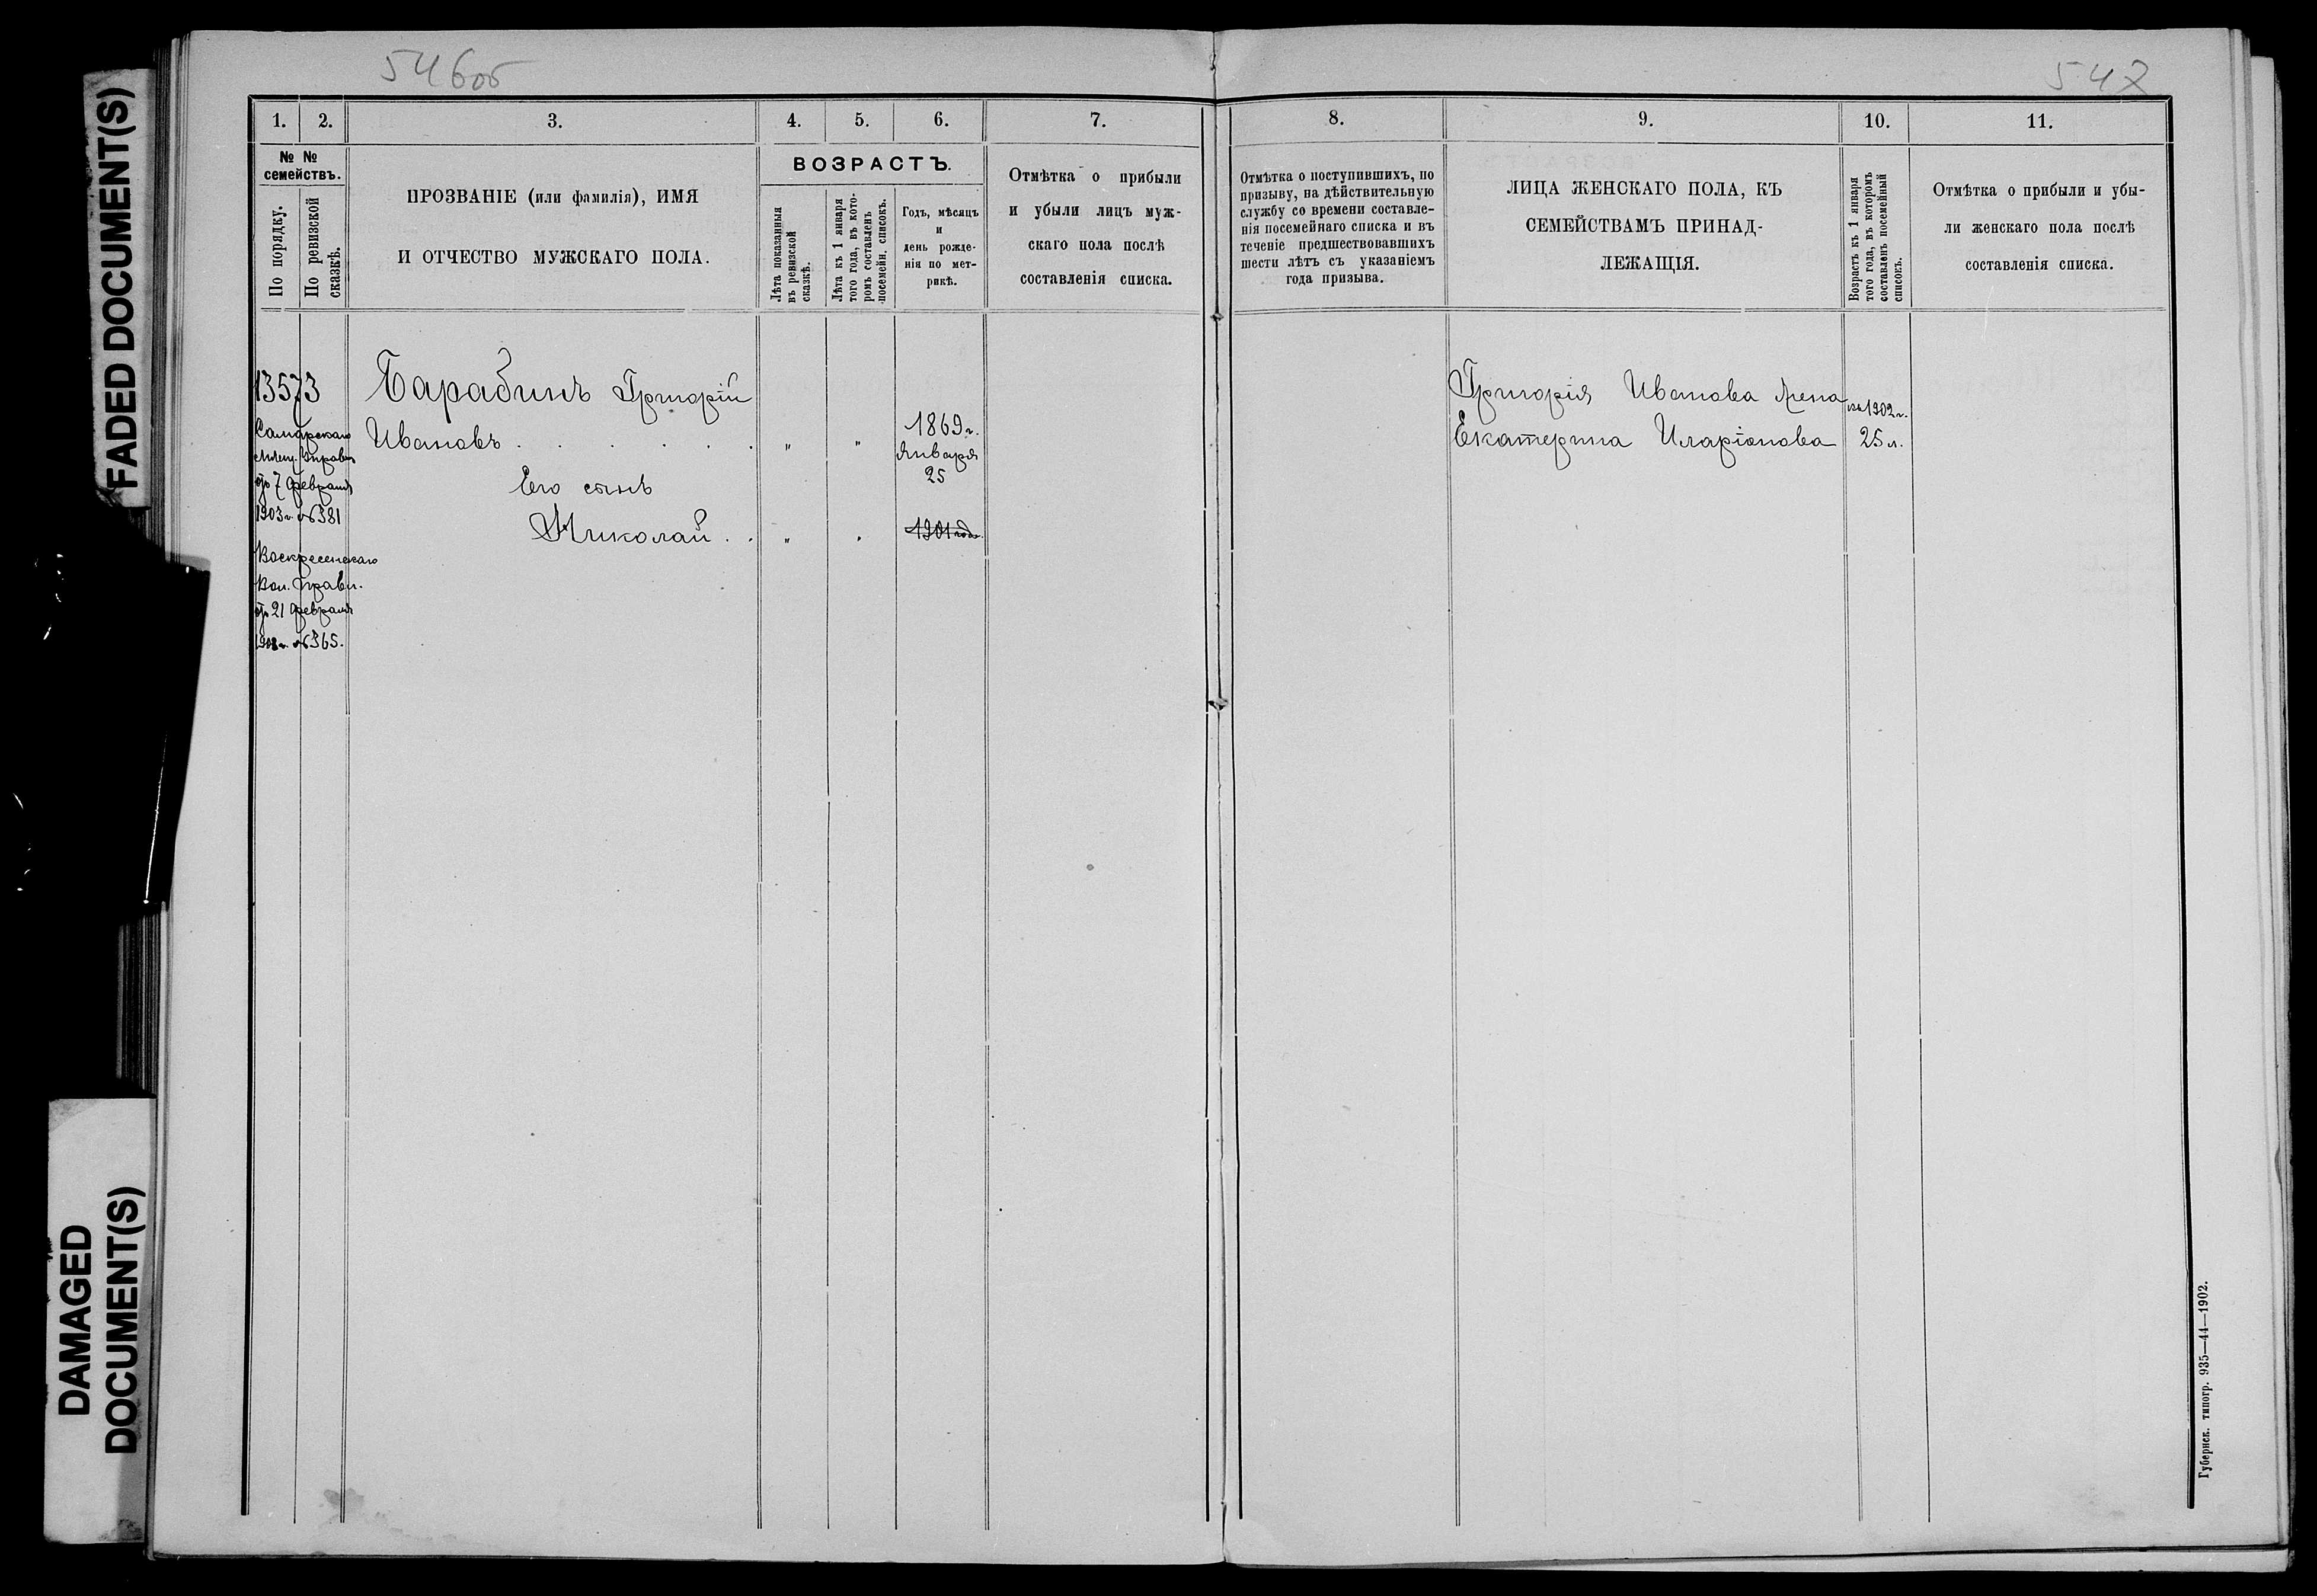 FADED DOCUMENT(S)
DAMAGED
DOCUMENT(S)
546об
547
1. 2. 3. 4. 5. 6. 7.
№ №
семействъ.
По порядку.
По ревизской
сказкѣ.
ПРОЗВАНІЕ (или фамилія), ИМЯ
И ОТЧЕСТВО МУЖСКАГО ПОЛА.
ВОЗРАСТЪ.
Лѣта показанныя
въ ревизской
сказкѣ.
Лѣта къ 1 января
того года, въ кото-
ромъ составленъ
посемейн. списокъ.
Годъ, мѣсяцъ
и
день рожде-
нія по мет-
рикѣ.
Отмѣтка о прибыли
и убыли лицъ муж-
скаго пола послѣ
составленія списка.
13573
Самарскаго
Мѣщ. Управы
отъ 7 февраля
1903 г. №381
Воскресенскаго
Вол. Правл.
отъ 21 февраля
1903 г. №365.
Барабинъ Григорій
Ивановъ . . . . . " "
1869 г.
Января
25
Его сынъ
Николай . . " " 1901 года
8. 9. 10. 11.
Отмѣтка о поступившихъ, по
призыву, на дѣйствительную
службу со времени составле-
нія посемейнаго списка и въ
теченіе предшествовавшихъ
шести лѣтъ съ указаніемъ
года призыва.
ЛИЦА ЖЕНСКАГО ПОЛА, КЪ
СЕМЕЙСТВАМЪ ПРИНАД-
ЛЕЖАЩІЯ.
Возрастъ къ 1 января
того года, въ которомъ
составленъ посемейный
списокъ.
Отмѣтка о прибыли и убы-
ли женскаго пола послѣ
составленія списка.
Григорія Иванова жена
Екатерина Иларіонова
въ 1902 г.
25 л.
Губернск. типогр. 935—44—1902.